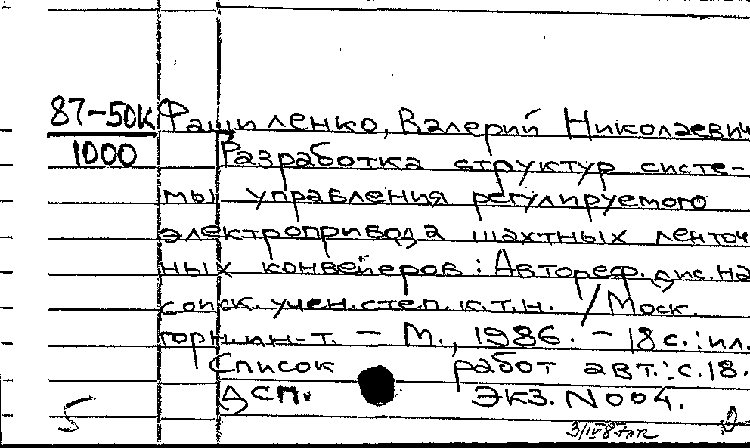 87-50К Фащиленко, Валерий Николаевич
1000 Разработка структур систе-
мы управления регулируемого
электропривода шахтных ленточ
ных конвейеров: Автореф. дис. на
соиск. учен. степ. к.т.н. / Моск.
горн. ин-т. – М., 1986. – 18 с.: ил.
Список работ авт.: с. 18.
ДСП. Экз. N 004.
5